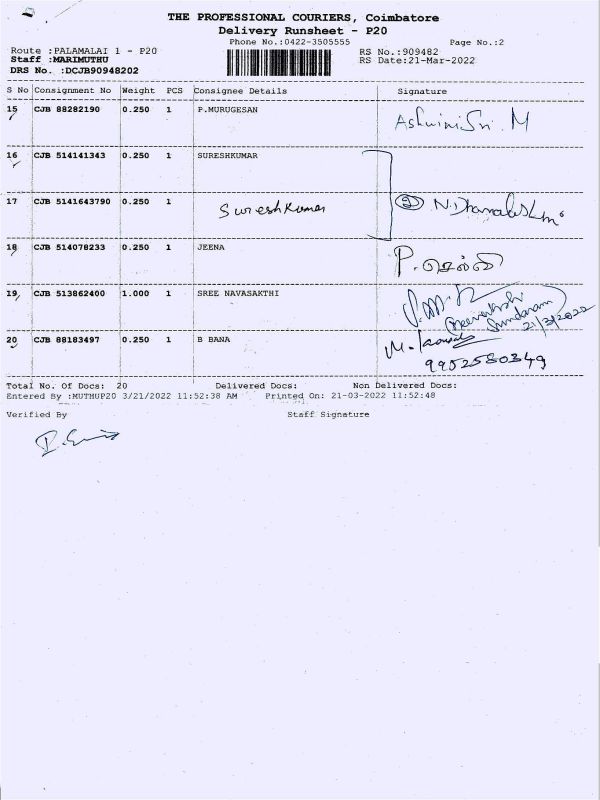 THE PROFESSIONAL COURIERS, Coimbatore
Delivery Runsheet - P20
Phone No.:0422-3505555 Page No.:2
Route :PALAMALAI 1 - P20 RS No.:909482
Staff :MARIMUTHU RS Date:21-Mar-2022
DRS No. :DCJB90948202
S No Consignment No Weight PCS Consignee Details Signature
15 CJB 88282190 0.250 1 P.MURUGESAN
AshwiniSri. M
16 CJB 514141343 0.250 1 SURESHKUMAR
17 CJB 5141643790 0.250 1 Sureshkumar
18 CJB 514078233 0.250 1 JEENA
P. செல்வி
19 CJB 513862400 1.000 1 SREE NAVASAKTHI
Meenakshi
Sundaram
21/3/2022
20 CJB 88183497 0.250 1 B BANA
9952580349
Total No. Of Docs: 20 Delivered Docs: Non Delivered Docs:
Entered By :MUTHUP20 3/21/2022 11:52:38 AM Printed On: 21-03-2022 11:52:48
Verified By Staff Signature